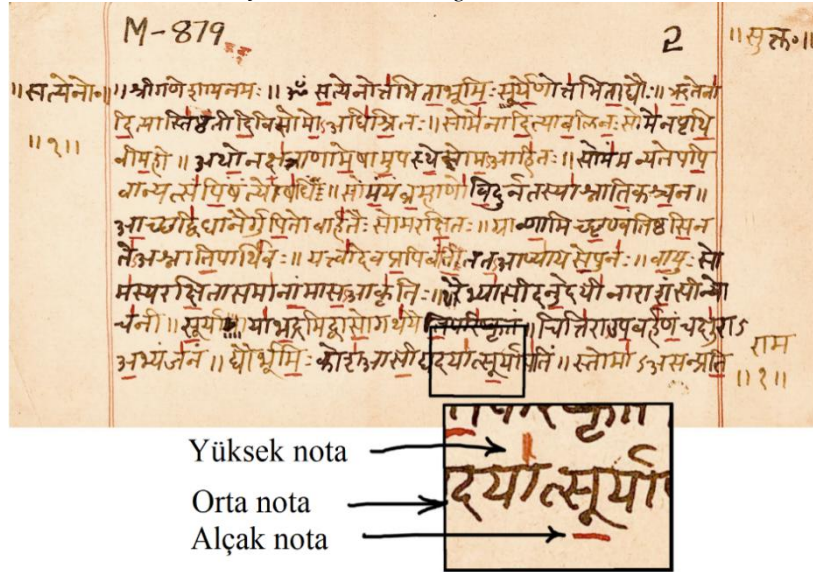 M-879 2 ॥सुक्त॰॥
॥सत्येनो॰॥ ॥श्रीगणेशायनमः॥ॐ सत्येनोत्तभिताभूमिःसूर्येणोत्तभिताद्यौः॥ऋतेना
दित्यास्तिष्ठंतीदिविसोमोऽअधिश्रितः॥सोमेनादित्याबलिनःसोमेनपृथि
॥१॥ वीमही॥अथोनक्षत्राणामेषामुपस्थेसोमआहितः॥सोमंमन्यतेपपि
वान्यत्संपिंषंत्योषधिं॥सोमंयंब्रह्माणोविदुर्नतस्याश्नातिकश्चन॥
आच्छद्विधानैर्गुपितोबार्हतैःसोमरक्षितः॥ग्राव्णामिच्छृण्वन्तिष्ठसिन
तेऽअश्नातिपार्थिवः॥यत्त्वादेवप्रपिबंतीततआप्यायसेपुनः॥वायुःसो
मस्यरक्षितासमानांमासआकृतिः॥रैभ्यासीदनुदेयीनाराशंसीन्यो
चनी॥सूर्यायाभद्रमिद्वासोगाथयैतिपरिष्कृतं॥चित्तिराऽउपबर्हणंचक्षुराऽ
अभ्यंजनं॥द्यौर्भूमिःकोशआसीद्यदयात्सूर्यापतिं॥स्तोमाऽआसन्प्रति
राम
॥१॥
Yüksek nota
Orta nota
Alçak nota
दयात्सूर्याप